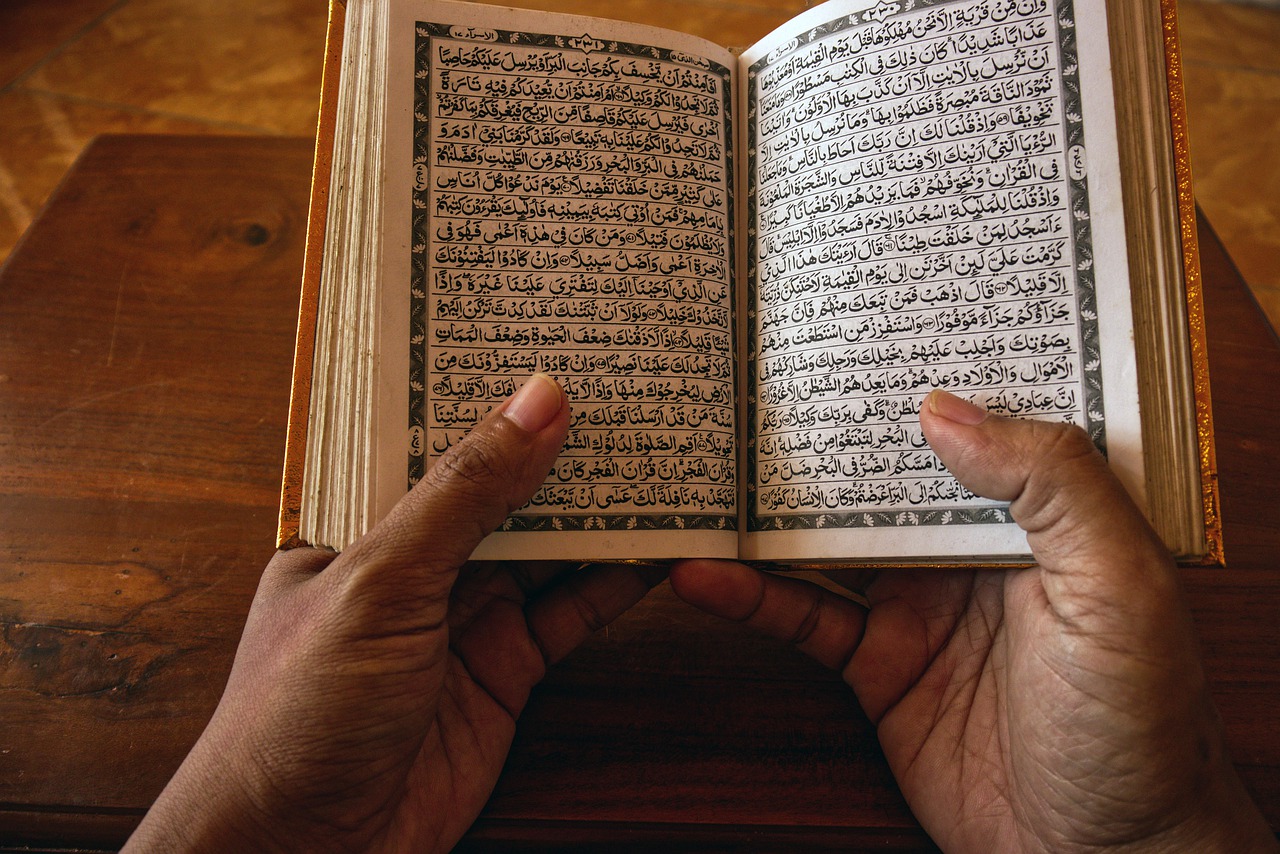 ٢٣٠
وَاِنْ مِّنْ قَرْيَةٍ اِلَّا نَحْنُ مُهْلِكُوْهَا قَبْلَ يَوْمِ الْقِيٰمَةِ اَوْ مُعَذِّبُوْهَا
عَذَابًا شَدِيْدًا كَانَ ذٰلِكَ فِى الْكِتٰبِ مَسْطُوْرًا ۝٥٨ وَمَا مَنَعَنَا
اَنْ نُّرْسِلَ بِالْاٰيٰتِ اِلَّا اَنْ كَذَّبَ بِهَا الْاَوَّلُوْنَ وَاٰتَيْنَا
ثَمُوْدَ النَّاقَةَ مُبْصِرَةً فَظَلَمُوْا بِهَا وَمَا نُرْسِلُ بِالْاٰيٰتِ اِلَّا
تَخْوِيْفًا ۝٥٩ وَاِذْ قُلْنَا لَكَ اِنَّ رَبَّكَ اَحَاطَ بِالنَّاسِ وَمَا جَعَلْنَا
الرُّءْيَا الَّتِيْٓ اَرَيْنٰكَ اِلَّا فِتْنَةً لِّلنَّاسِ وَالشَّجَرَةَ الْمَلْعُوْنَةَ
فِى الْقُرْاٰنِ وَنُخَوِّفُهُمْ فَمَا يَزِيْدُهُمْ اِلَّا طُغْيَانًا كَبِيْرًا ۝٦٠
وَاِذْ قُلْنَا لِلْمَلٰٓئِكَةِ اسْجُدُوْا لِاٰدَمَ فَسَجَدُوْٓا اِلَّآ اِبْلِيْسَ قَالَ
ءَاَسْجُدُ لِمَنْ خَلَقْتَ طِيْنًا ۝٦١ قَالَ اَرَءَيْتَكَ هٰذَا الَّذِيْ
كَرَّمْتَ عَلَيَّ لَئِنْ اَخَّرْتَنِ اِلٰى يَوْمِ الْقِيٰمَةِ لَاَحْتَنِكَنَّ ذُرِّيَّتَهٗٓ
اِلَّا قَلِيْلًا ۝٦٢ قَالَ اذْهَبْ فَمَنْ تَبِعَكَ مِنْهُمْ فَاِنَّ جَهَنَّمَ
جَزَآؤُكُمْ جَزَآءً مَّوْفُوْرًا ۝٦٣ وَاسْتَفْزِزْ مَنِ اسْتَطَعْتَ مِنْهُمْ
بِصَوْتِكَ وَاَجْلِبْ عَلَيْهِمْ بِخَيْلِكَ وَرَجِلِكَ وَشَارِكْهُمْ فِى
الْاَمْوَالِ وَالْاَوْلَادِ وَعِدْهُمْ وَمَا يَعِدُهُمُ الشَّيْطٰنُ اِلَّا غُرُوْرًا ۝٦٤
اِنَّ عِبَادِيْ لَيْسَ سُلْطٰنٌ وَكَفٰى بِرَبِّكَ وَكِيْلًا ۝٦٥ رَبُّكُمُ
فِى الْبَحْرِ لِتَبْتَغُوْا مِنْ فَضْلِهٖ اِنَّهٗ
مَسَّكُمُ الضُّرُّ فِى الْبَحْرِ ضَلَّ مَنْ
نَجّٰىكُمْ اِلَى الْبَرِّ اَعْرَضْتُمْ وَكَانَ الْاِنْسَانُ كَفُوْرًا ۝٦٧
الاسرآء ١٧ ٢٣١ سبحن الذى ١٥
اَفَاَمِنْتُمْ اَنْ يَّخْسِفَ بِكُمْ جَانِبَ الْبَرِّ اَوْ يُرْسِلَ عَلَيْكُمْ حَاصِبًا
ثُمَّ لَا تَجِدُوْا لَكُمْ وَكِيْلًا ۝٦٨ اَمْ اَمِنْتُمْ اَنْ يُّعِيْدَكُمْ فِيْهِ تَارَةً
اُخْرٰى فَيُرْسِلَ عَلَيْكُمْ قَاصِفًا مِّنَ الرِّيْحِ فَيُغْرِقَكُمْ بِمَا كَفَرْتُمْ
ثُمَّ لَا تَجِدُوْا لَكُمْ عَلَيْنَا بِهٖ تَبِيْعًا ۝٦٩ وَلَقَدْ كَرَّمْنَا بَنِيْٓ اٰدَمَ وَ
حَمَلْنٰهُمْ فِى الْبَرِّ وَالْبَحْرِ وَرَزَقْنٰهُمْ مِّنَ الطَّيِّبٰتِ وَفَضَّلْنٰهُمْ
عَلٰى كَثِيْرٍ مِّمَّنْ خَلَقْنَا تَفْضِيْلًا ۝٧٠ يَوْمَ نَدْعُوْا كُلَّ اُنَاسٍ
بِاِمَامِهِمْ فَمَنْ اُوْتِيَ كِتٰبَهٗ بِيَمِيْنِهٖ فَاُولٰٓئِكَ يَقْرَءُوْنَ كِتٰبَهُمْ
وَلَا يُظْلَمُوْنَ فَتِيْلًا ۝٧١ وَمَنْ كَانَ فِيْ هٰذِهٖٓ اَعْمٰى فَهُوَ فِى
الْاٰخِرَةِ اَعْمٰى وَاَضَلُّ سَبِيْلًا ۝٧٢ وَاِنْ كَادُوْا لَيَفْتِنُوْنَكَ
عَنِ الَّذِيْٓ اَوْحَيْنَآ اِلَيْكَ لِتَفْتَرِيَ عَلَيْنَا غَيْرَهٗ وَاِذًا
لَّاتَّخَذُوْكَ خَلِيْلًا ۝٧٣ وَلَوْلَآ اَنْ ثَبَّتْنٰكَ لَقَدْ كِدْتَّ تَرْكَنُ اِلَيْهِمْ
شَيْئًا قَلِيْلًا ۝٧٤ اِذًا لَّاَذَقْنٰكَ ضِعْفَ الْحَيٰوةِ وَضِعْفَ الْمَمَاتِ
ثُمَّ لَا تَجِدُ لَكَ عَلَيْنَا نَصِيْرًا ۝٧٥ وَاِنْ كَادُوْا لَيَسْتَفِزُّوْنَكَ مِنَ
الْاَرْضِ لِيُخْرِجُوْكَ مِنْهَا وَاِذًا خِلٰفَكَ اِلَّا قَلِيْلًا ۝٧٦
سُنَّةَ مَنْ قَدْ اَرْسَلْنَا قَبْلَكَ مِنْ لِسُنَّتِنَا
تَحْوِيْلًا ۝٧٧ اَقِمِ الصَّلٰوةَ لِدُلُوْكِ الشَّمْسِ
وَقُرْاٰنَ الْفَجْرِ اِنَّ قُرْاٰنَ الْفَجْرِ كَانَ
فَتَهَجَّدْ بِهٖ نَافِلَةً لَّكَ عَسٰٓى اَنْ يَّبْعَثَكَ